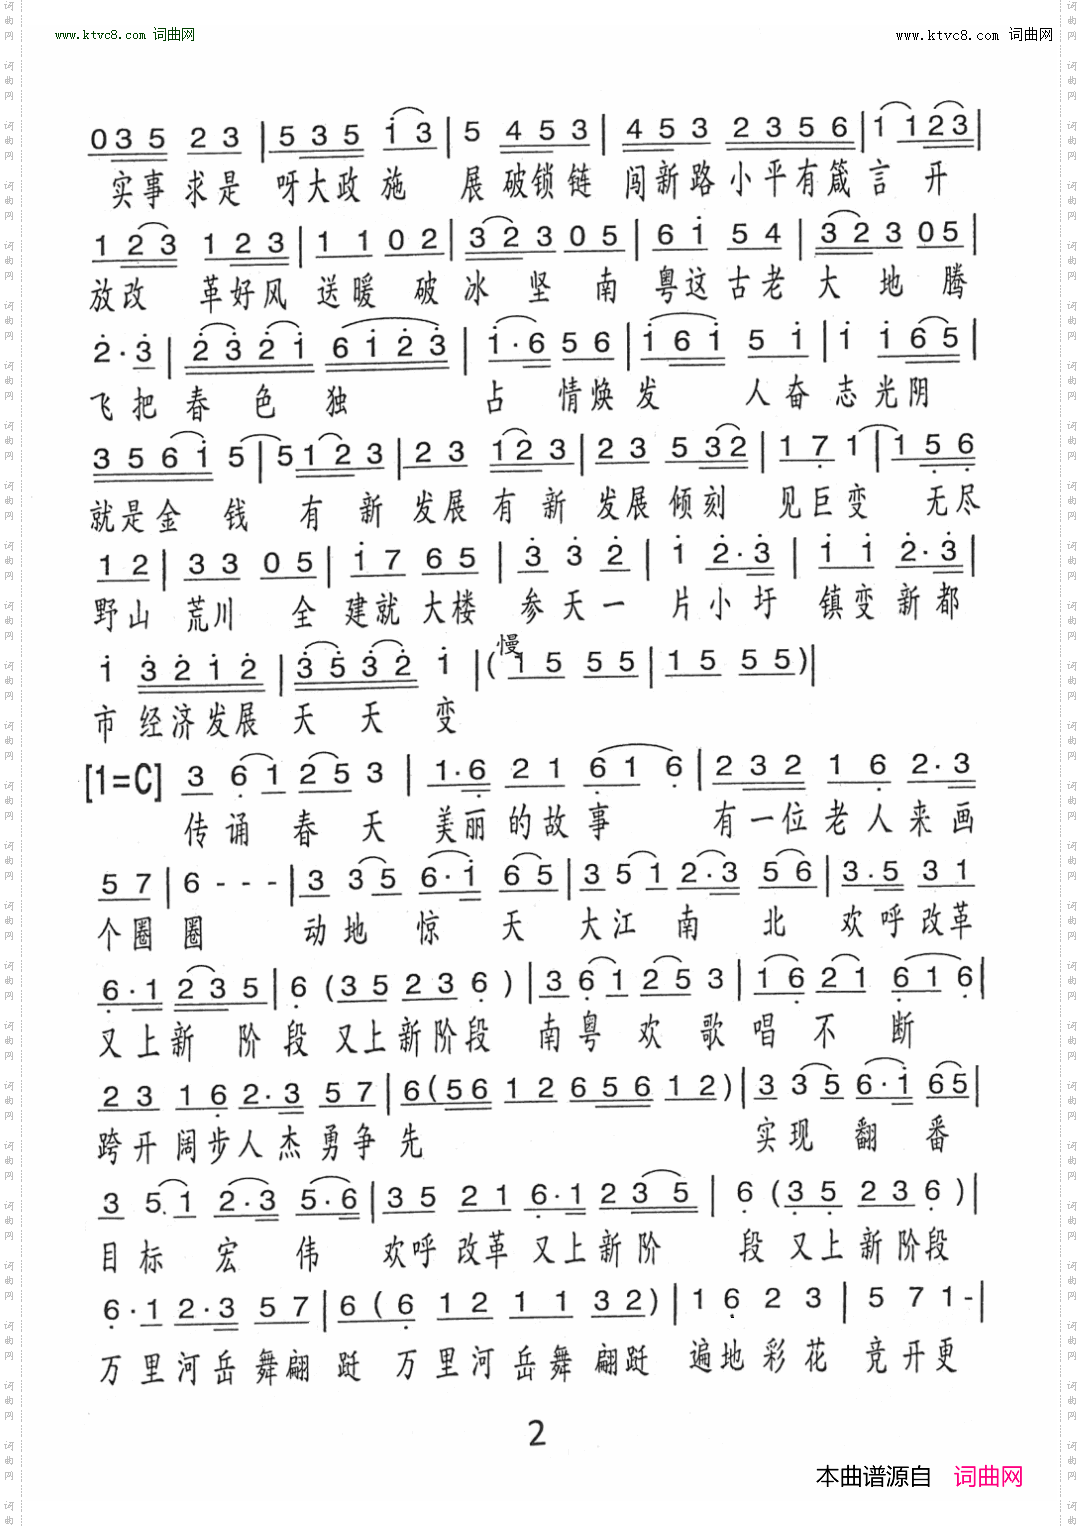 www.ktvc8.com 词曲网 www.ktvc8.com 词曲网
0 3 5 2 3 | 5 3 5 i 3 | 5 4 5 3 | 4 5 3 2 3 5 6 | 1 1 2 3 |
实事求是 呀大政施 展破锁链 闯新路小平有箴言开
1 2 3 1 2 3 | 1 1 0 2 | 3 2 3 0 5 | 6 i 5 4 | 3 2 3 0 5 |
放改 革好风 送暖 破冰 坚 南 粤这古老大 地 腾
2 · 3 | 2 3 2 i 6 i 2 3 | i · 6 5 6 | i 6 i 5 i | i i 6 5 |
飞把 春 色 独 占 情焕发 人奋志光阴
3 5 6 i 5 | 5 1 2 3 | 2 3 1 2 3 | 2 3 5 3 2 | 1 7 1 | 1 5 6
就是金 钱 有 新 发展有新 发展倾刻 见巨变 无尽
1 2 | 3 3 0 5 | i 7 6 5 | 3 3 2 | i 2 · 3 | i i 2 · 3 |
野山 荒川 全 建就大楼 参天一 片小圩 镇变新都
i 3 2 i 2 | 3 5 3 2 i | ( 慢 1 5 5 5 | 1 5 5 5 ) |
市 经济发展 天 天 变
[1=C] 3 6 1 2 5 3 | 1 · 6 2 1 6 1 6 | 2 3 2 1 6 2 · 3
传诵 春 天 美丽的故事 有一位老人来画
5 7 | 6 - - - | 3 3 5 6 · i 6 5 | 3 5 1 2 · 3 5 6 | 3 · 5 3 1
个圈圈 动地 惊 天 大江 南 北 欢呼改革
6 · 1 2 3 5 | 6 ( 3 5 2 3 6 ) | 3 6 1 2 5 3 | 1 6 2 1 6 1 6 |
又上新 阶段又上新阶段 南粤 欢歌唱不 断
2 3 1 6 2 · 3 5 7 | 6 ( 5 6 1 2 6 5 6 1 2 ) | 3 3 5 6 · i 6 5 |
跨开阔步人杰勇争先 实现 翻 番
3 5 1 2 · 3 5 · 6 | 3 5 2 1 6 · 1 2 3 5 | 6 ( 3 5 2 3 6 ) |
目标 宏 伟 欢呼改革又上新阶 段又上新阶段
6 · 1 2 · 3 5 7 | 6 ( 6 1 2 1 1 3 2 ) | 1 6 2 3 | 5 7 1 - |
万里河岳舞翩跹 万里河岳舞翩跹 遍地彩花 竞开更
2
本曲谱源自 词曲网